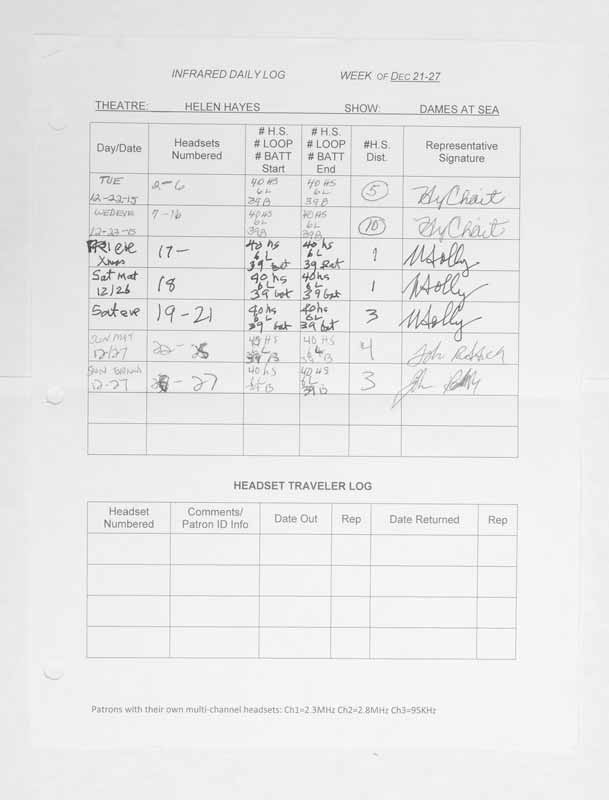 INFRARED DAILY LOG WEEK OF DEC 21-27
THEATRE: HELEN HAYES SHOW: DAMES AT SEA
Day/Date Headsets Numbered # H.S. # LOOP # BATT Start # H.S. # LOOP # BATT End #H.S. Dist. Representative Signature
TUE 12-22-15 2-6 40 HS 6L 39B 40 HS 6L 39B 5
WED EVE 12-23-15 7-16 40HS 6L 39B 40HS 6L 39B 10
FRI eve Xmas 17- 40 hs 6L 39 bat 40 hs 6L 39 bat 1 MHolly
Sat Mat 12/26 18 40 hs 6L 39 bat 40 hs 6L 39 bat 1 MHolly
Sat eve 19-21 40 hs 6L 39 bat 40 hs 6L 39 bat 3 MHolly
SUN MAT 12/27 22- 40 HS 6L 39 B 40 HS 6L 39 B 4 John
SUN 12-27 - 27 40 HS 6L 39 B 40 HS 6L 39 B 3 John
HEADSET TRAVELER LOG
Headset Numbered Comments/ Patron ID Info Date Out Rep Date Returned Rep
Patrons with their own multi-channel headsets: Ch1=2.3MHz Ch2=2.8MHz Ch3=95KHz